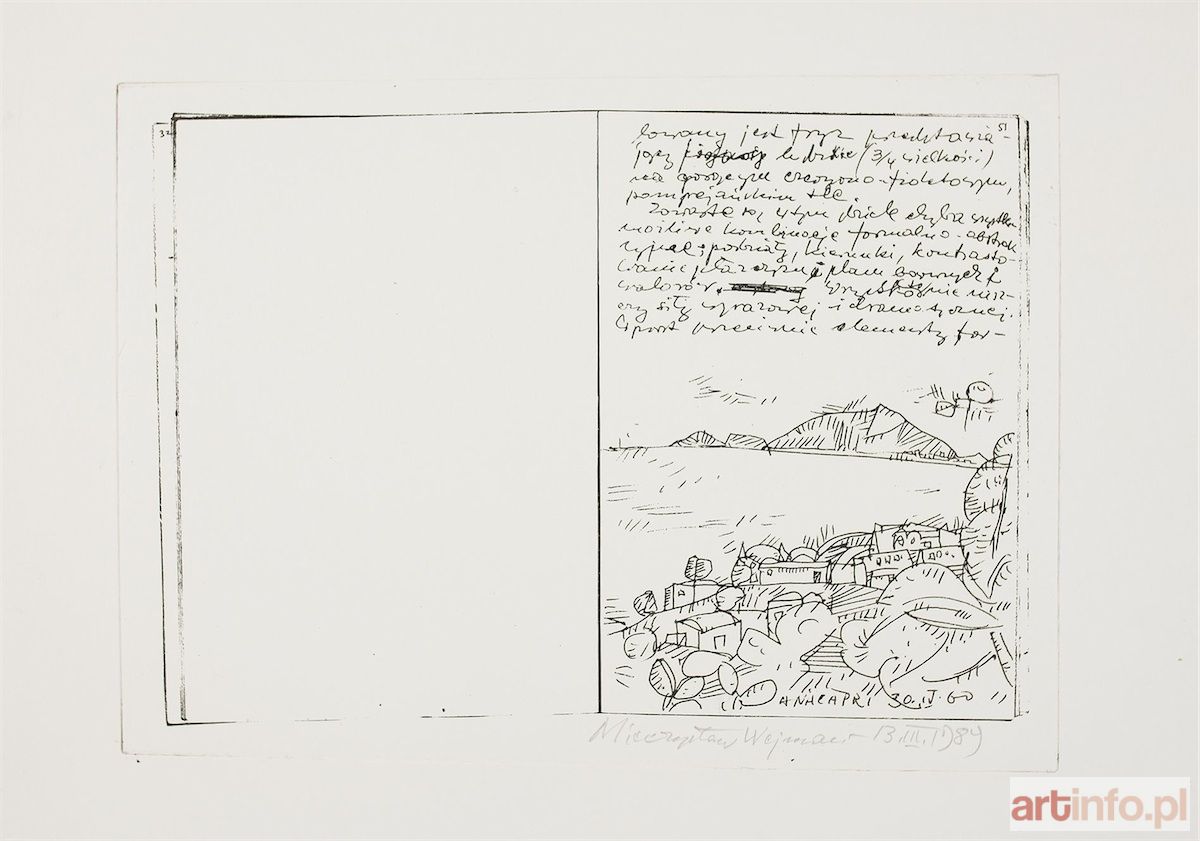 32
51
lowany jest fryz przedstawia-
jący ludzkie (3/4 wielkości)
na gorącym czerwono-fioletowym,
pompejańskim tle.
Zawarte są w tym dziele chyba wszystkie
możliwe kombinacje formalno-abstrak
cyjne; podziały, kierunki, kontrasto-
wanie płaszczyzn i plam barwnych i
walorów. Wszystkie nisz-
czy siły wyrazowej i dramatycznej.
elementy for-
ANACAPRI 30.IV.60
Mieczysław Wejman 13.III.1984
artinfo.pl